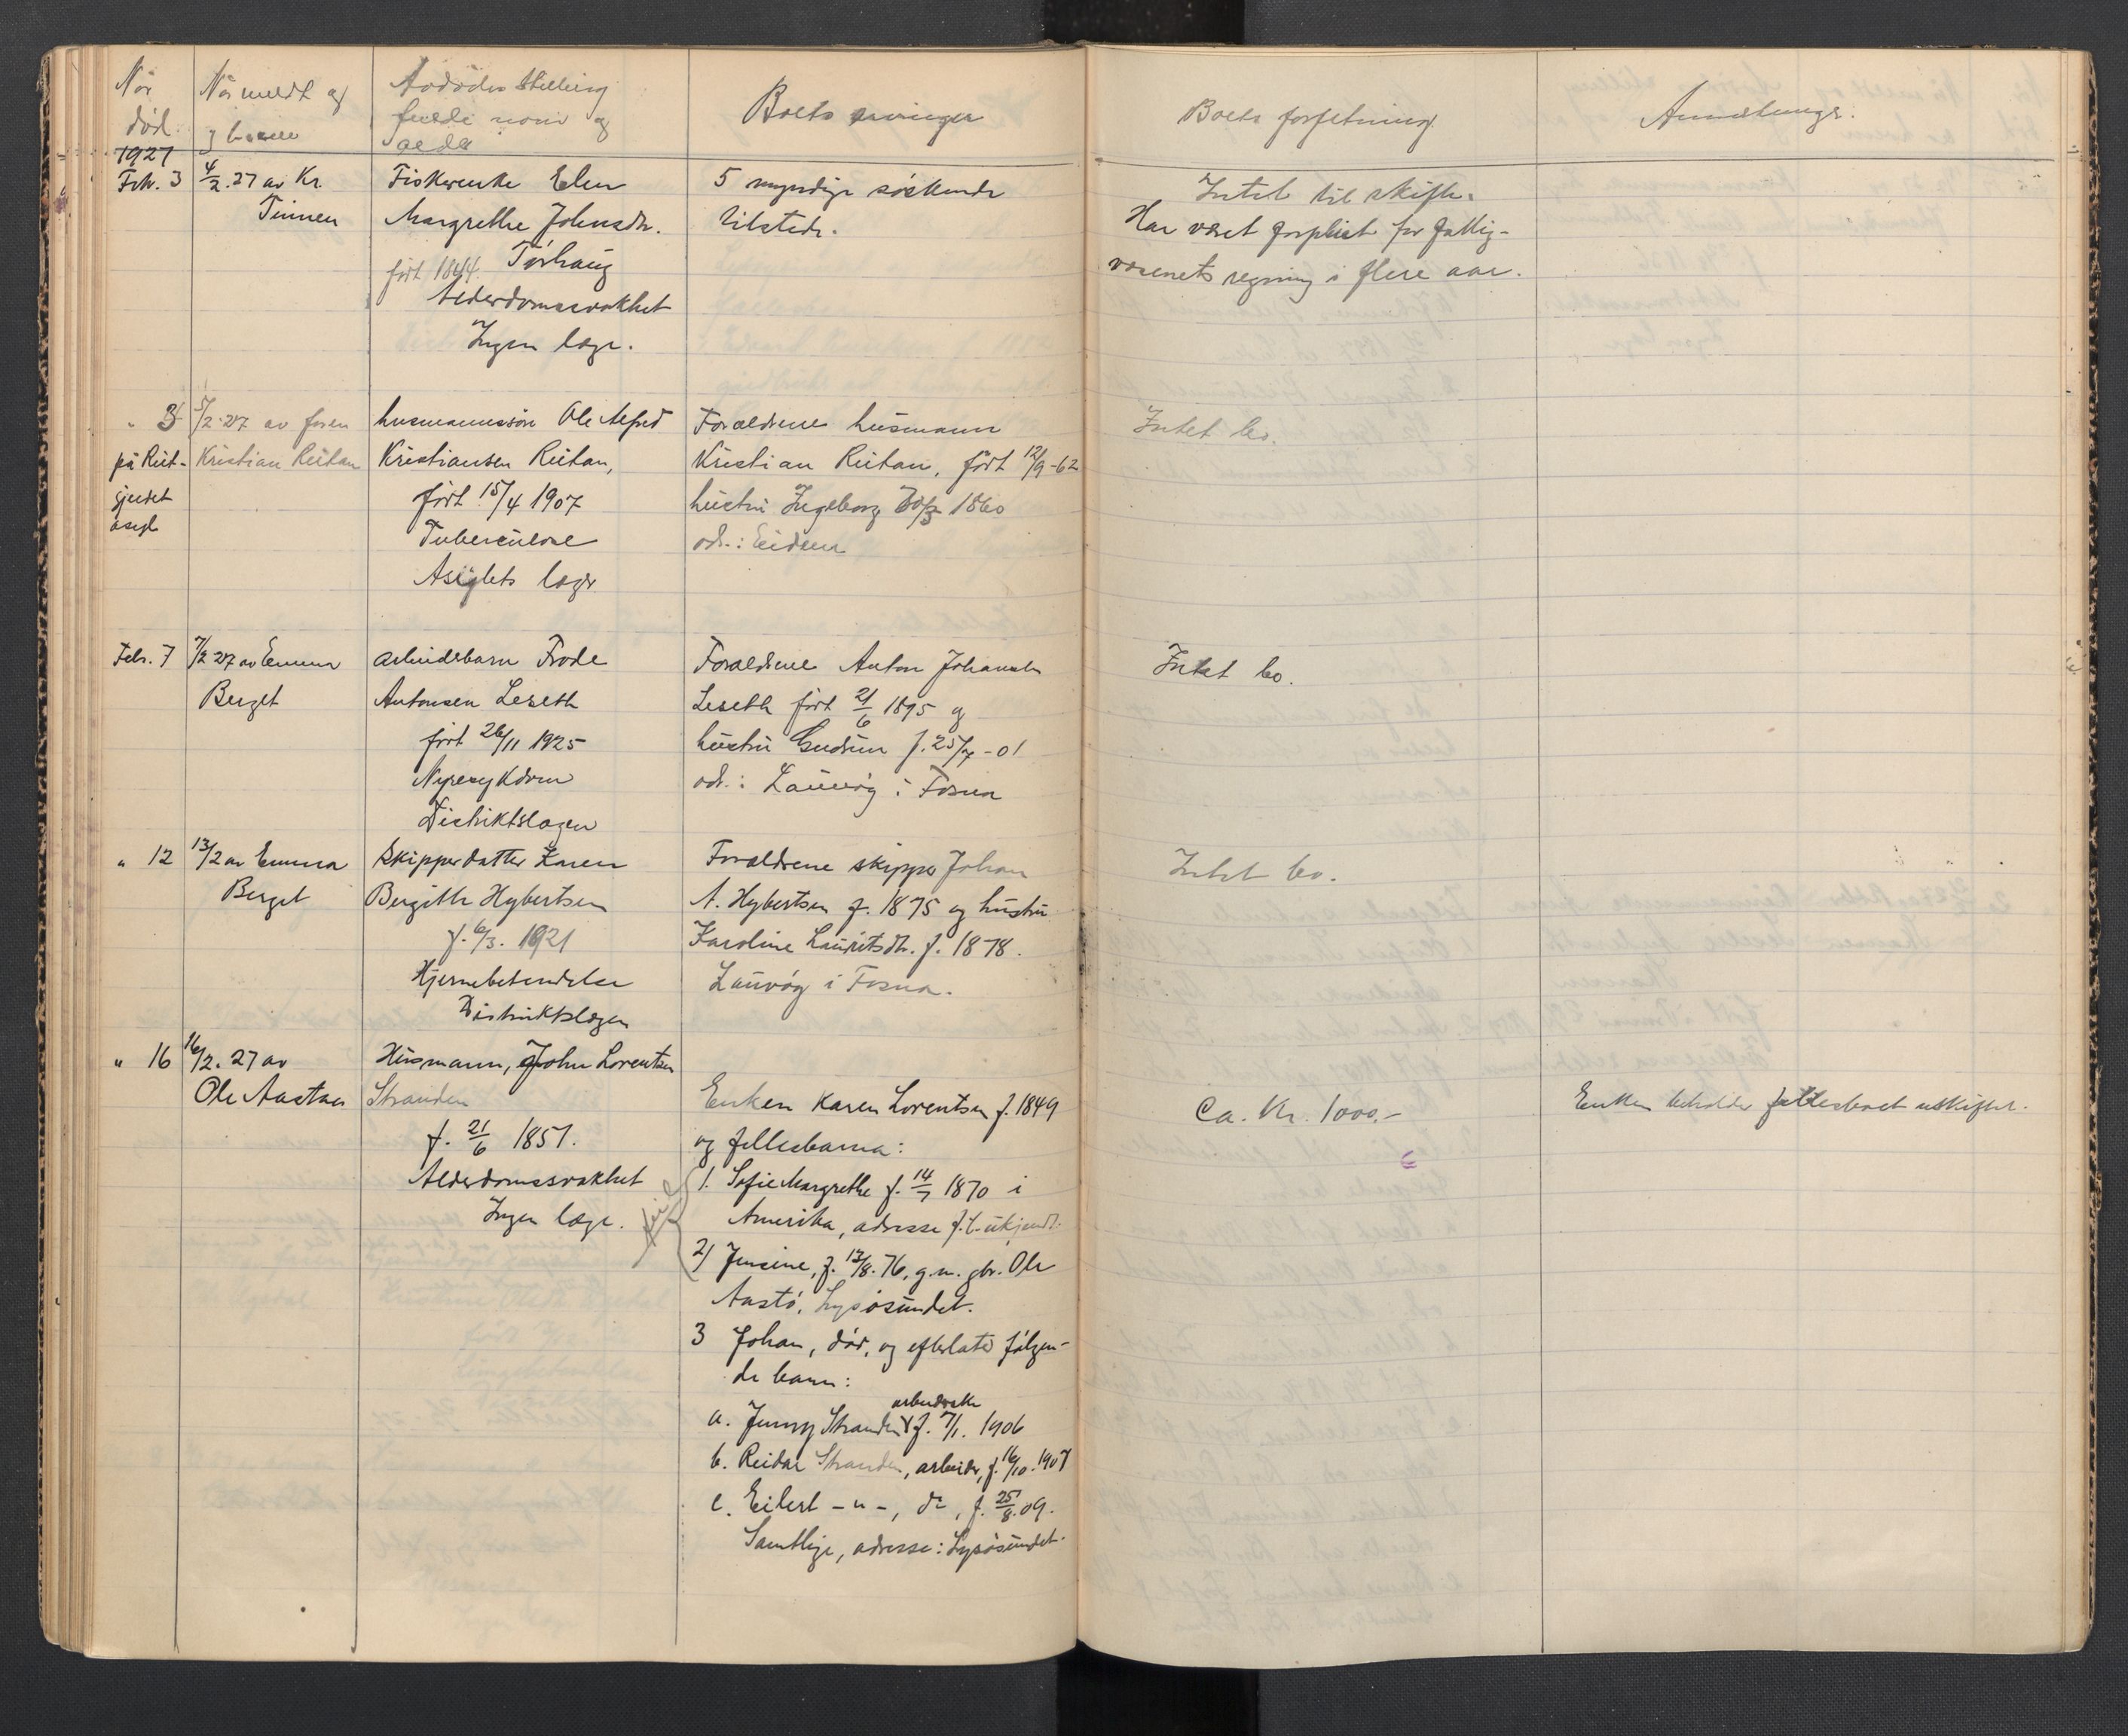 Når
død.
Når meldt og
Avdødes stilling
fulde navn og
Boets arvinger
Boets forfatning
Anmerkninger.
1927
Feb. 3
4/2.27 av Kr.
Tinnen
Fiskerenke Elen
Margrethe Johnsdtr.
født 1844. Tørhaug
Alderdomssvakhet
Ingen læge.
5 myndige søskende
tilstede.
Intet til skifte.
Har været forpleiet for fattig-
væsenets regning i flere aar.
" 3
på Reit-
gjerdet
asyl
5/2.27 av faren
Kristian Reitan
husmannssøn Ole Alfred
Kristiansen Reitan,
født 15/4 1907
Tuberculose
Asylets læge
Forældrene husmann
Kristian Reitan, født 12/9-62
hustru Ingeborg 1860
adr.:
Intet bo.
Febr. 7
7/2 27 av Emma
Berget
arbeidsbarn Frode
Antonsen Leseth
født 26/11 1925
Nyresykdom
Distriktslægen
Forældrene Anton Johansen
Leseth født 21/6 1895 og
hustru Gudrun f. 25/7-01
adr.: Lauvøy i Fosna
Intet bo.
" 12
13/2 av Emma
Berget
Skipperdatter Karen
Bergithe Hybertsen
f. 6/3. 1921
Hjernebetendelse
Distriktslægen
Forældrene skipper Johan
A. Hybertsen f. 1875 og hustru
Karoline Lauritsdtr. f. 1878.
Lauvøy i Fosna.
Intet bo.
" 16
16/2.27 av
Ole Aastøen
Husmann, John Lorentsen
Stranden
f. 21/6 1851.
Alderdomssvakhet
Ingen læge.
Enken Karen Lorentsen f. 1849
og fellesbarna:
1. Sofie Margrethe f. 14/7 1870 i
Amerika, adresse f.t. ukjendt.
2) Jensine, f. 12/8.76, g.m. gbr. Ole
Aastø, Lysøsundet.
3 Johan, død, og efterlater følgen-
de barn:
arbeiderske
a. Jenny Stranden f. 7/1. 1906
b. Reidar Stranden, arbeider, f. 16/10.1907
c. Eilert -"-, do, f. 25/8.09.
Samtlige, adresse: Lysøsundet.
Ca. Kr. 1000.-
Enken beholder fellesboet uskiftet.